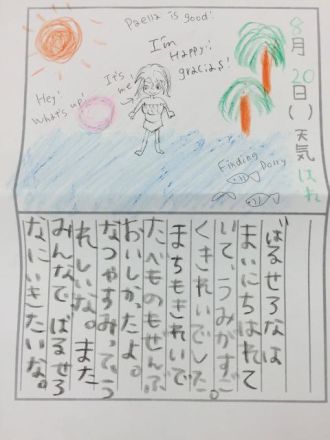 Paella is good!
I'm
Happy!
gracias!
It's
me
Hey!
What's up!
8月20日( )天気 はれ
Finding
Dory
ばるせろなは
まいにちはれて
いて、うみがすご
くきれいでした。
まちもきれいで
たべものもぜんぶ
おいしかったよ。
なつやすみって、う
れしいな。また
みんなでばるせろ
なにいきたいな。